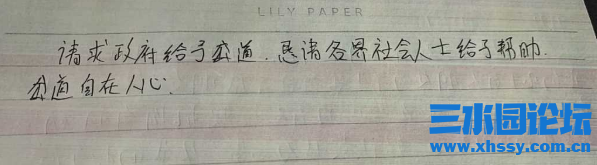 LILY PAPER
请求政府给予公道.恳请各界社会人士给予帮助.
公道自在人心.
三水园论坛
www.xhssy.com.cn